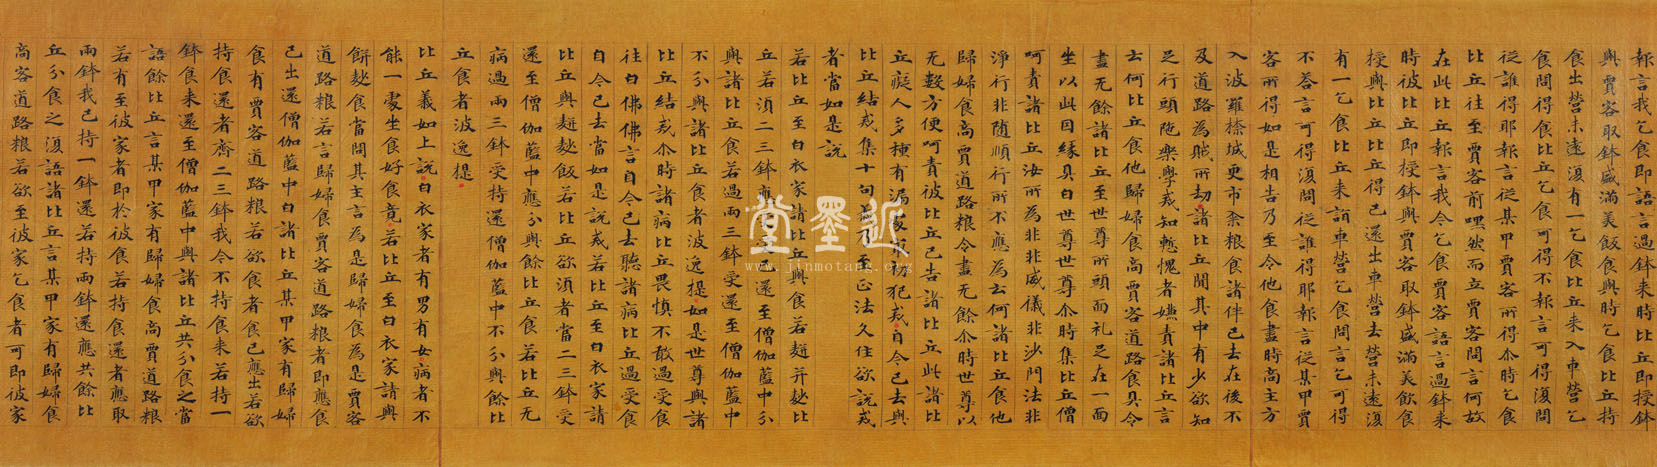 報言我乞食即語言過鉢来時比丘即授鉢
與賈客取鉢盛滿美飯食與時乞食比丘持
食出營未遠復有一乞食比丘来入車營乞
食問得食比丘乞食可得不報言可得復問
從誰得耶報言從某甲賈客所得尒時乞食
比丘往至賈客前嘿然而立賈客問言何故
在此比丘報言我今乞食賈客語言過鉢来
時彼比丘即授鉢與賈客取鉢盛滿美飲食
授與比丘比丘得已還出車營去營未遠復
有一乞食比丘来詣車營乞食問言乞可得
不答言可得復問從誰得耶報言從某甲賈
客所得如是相告乃至令他食盡時高主方
入波羅㮈城更市籴粮食諸伴已去在後不
及道路為賊所劫諸比丘聞其中有少欲知
足行頭陁樂學戒知慙愧者嫌責諸比丘言
云何比丘食他歸婦食高賈客道路食具令
盡无餘諸比丘至世尊所頭面礼足在一面
坐以此因緣具白世尊世尊尒時集比丘僧
呵責諸比丘汝所為非非威儀非沙門法非
淨行非随順行所不應為云何諸比丘食他
歸婦食高賈道路粮令盡无餘尒時世尊以
无數方便呵責彼比丘已告諸比丘此諸比
丘癡人多種有漏處最初犯戒自今已去與
比丘結戒集十句義乃至正法久住欲說戒
者當如是說
若比丘至白衣家請比丘與食若䴵并麨比
丘若湏二三鉢應受持還至僧伽藍中分
與諸比丘食若過兩三鉢受還至僧伽藍中
不分與諸比丘食者波逸提如是世尊與諸
比丘結戒尒時諸病比丘畏慎不敢過受食
往白佛佛言自今已去聽諸病比丘過受食
自今已去當如是說戒若比丘至白衣家請
比丘與䴵麨飯若比丘欲湏者當二三鉢受
還至僧伽藍中應分與餘比丘食若比丘无
病過兩三鉢受持還僧伽藍中不分與餘比
丘食者波逸提
比丘義如上說白衣家者有男有女病者不
能一處坐食好食竟若比丘至白衣家請與
餅麨食當問其主言為是歸婦食為是賈客
道路粮若言歸婦食賈客道路粮者即應食
已出還僧伽藍中白諸比丘某甲家有歸婦
食有賈客道路粮若欲食者食已應出若欲
持食還者齊二三鉢我今不持食来若持一
鉢食来還至僧伽藍中與諸比丘共分食之當
語餘比丘言某甲家有歸婦食高賈道路粮
若有至彼家者即於彼食若持食還者應取
兩鉢我已持一鉢還若持兩鉢還應共餘比
丘分食之復語諸比丘言某甲家有歸婦食
高客道路粮若欲至彼家乞食者可即彼家
近墨堂
www.jinmotang.org